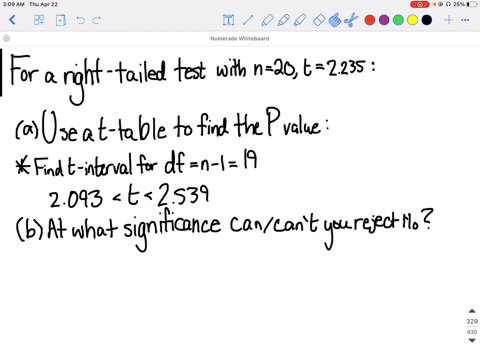 3:09 AM Thu Apr 22
25%
Numerade Whiteboard
For a right-tailed test with n=20, t=2.235:
(a) Use a t-table to find the P value:
* Find t-interval for df=n-1=19
2.093 < t < 2.539
(b) At what significance can/can't you reject H₀?
329
430